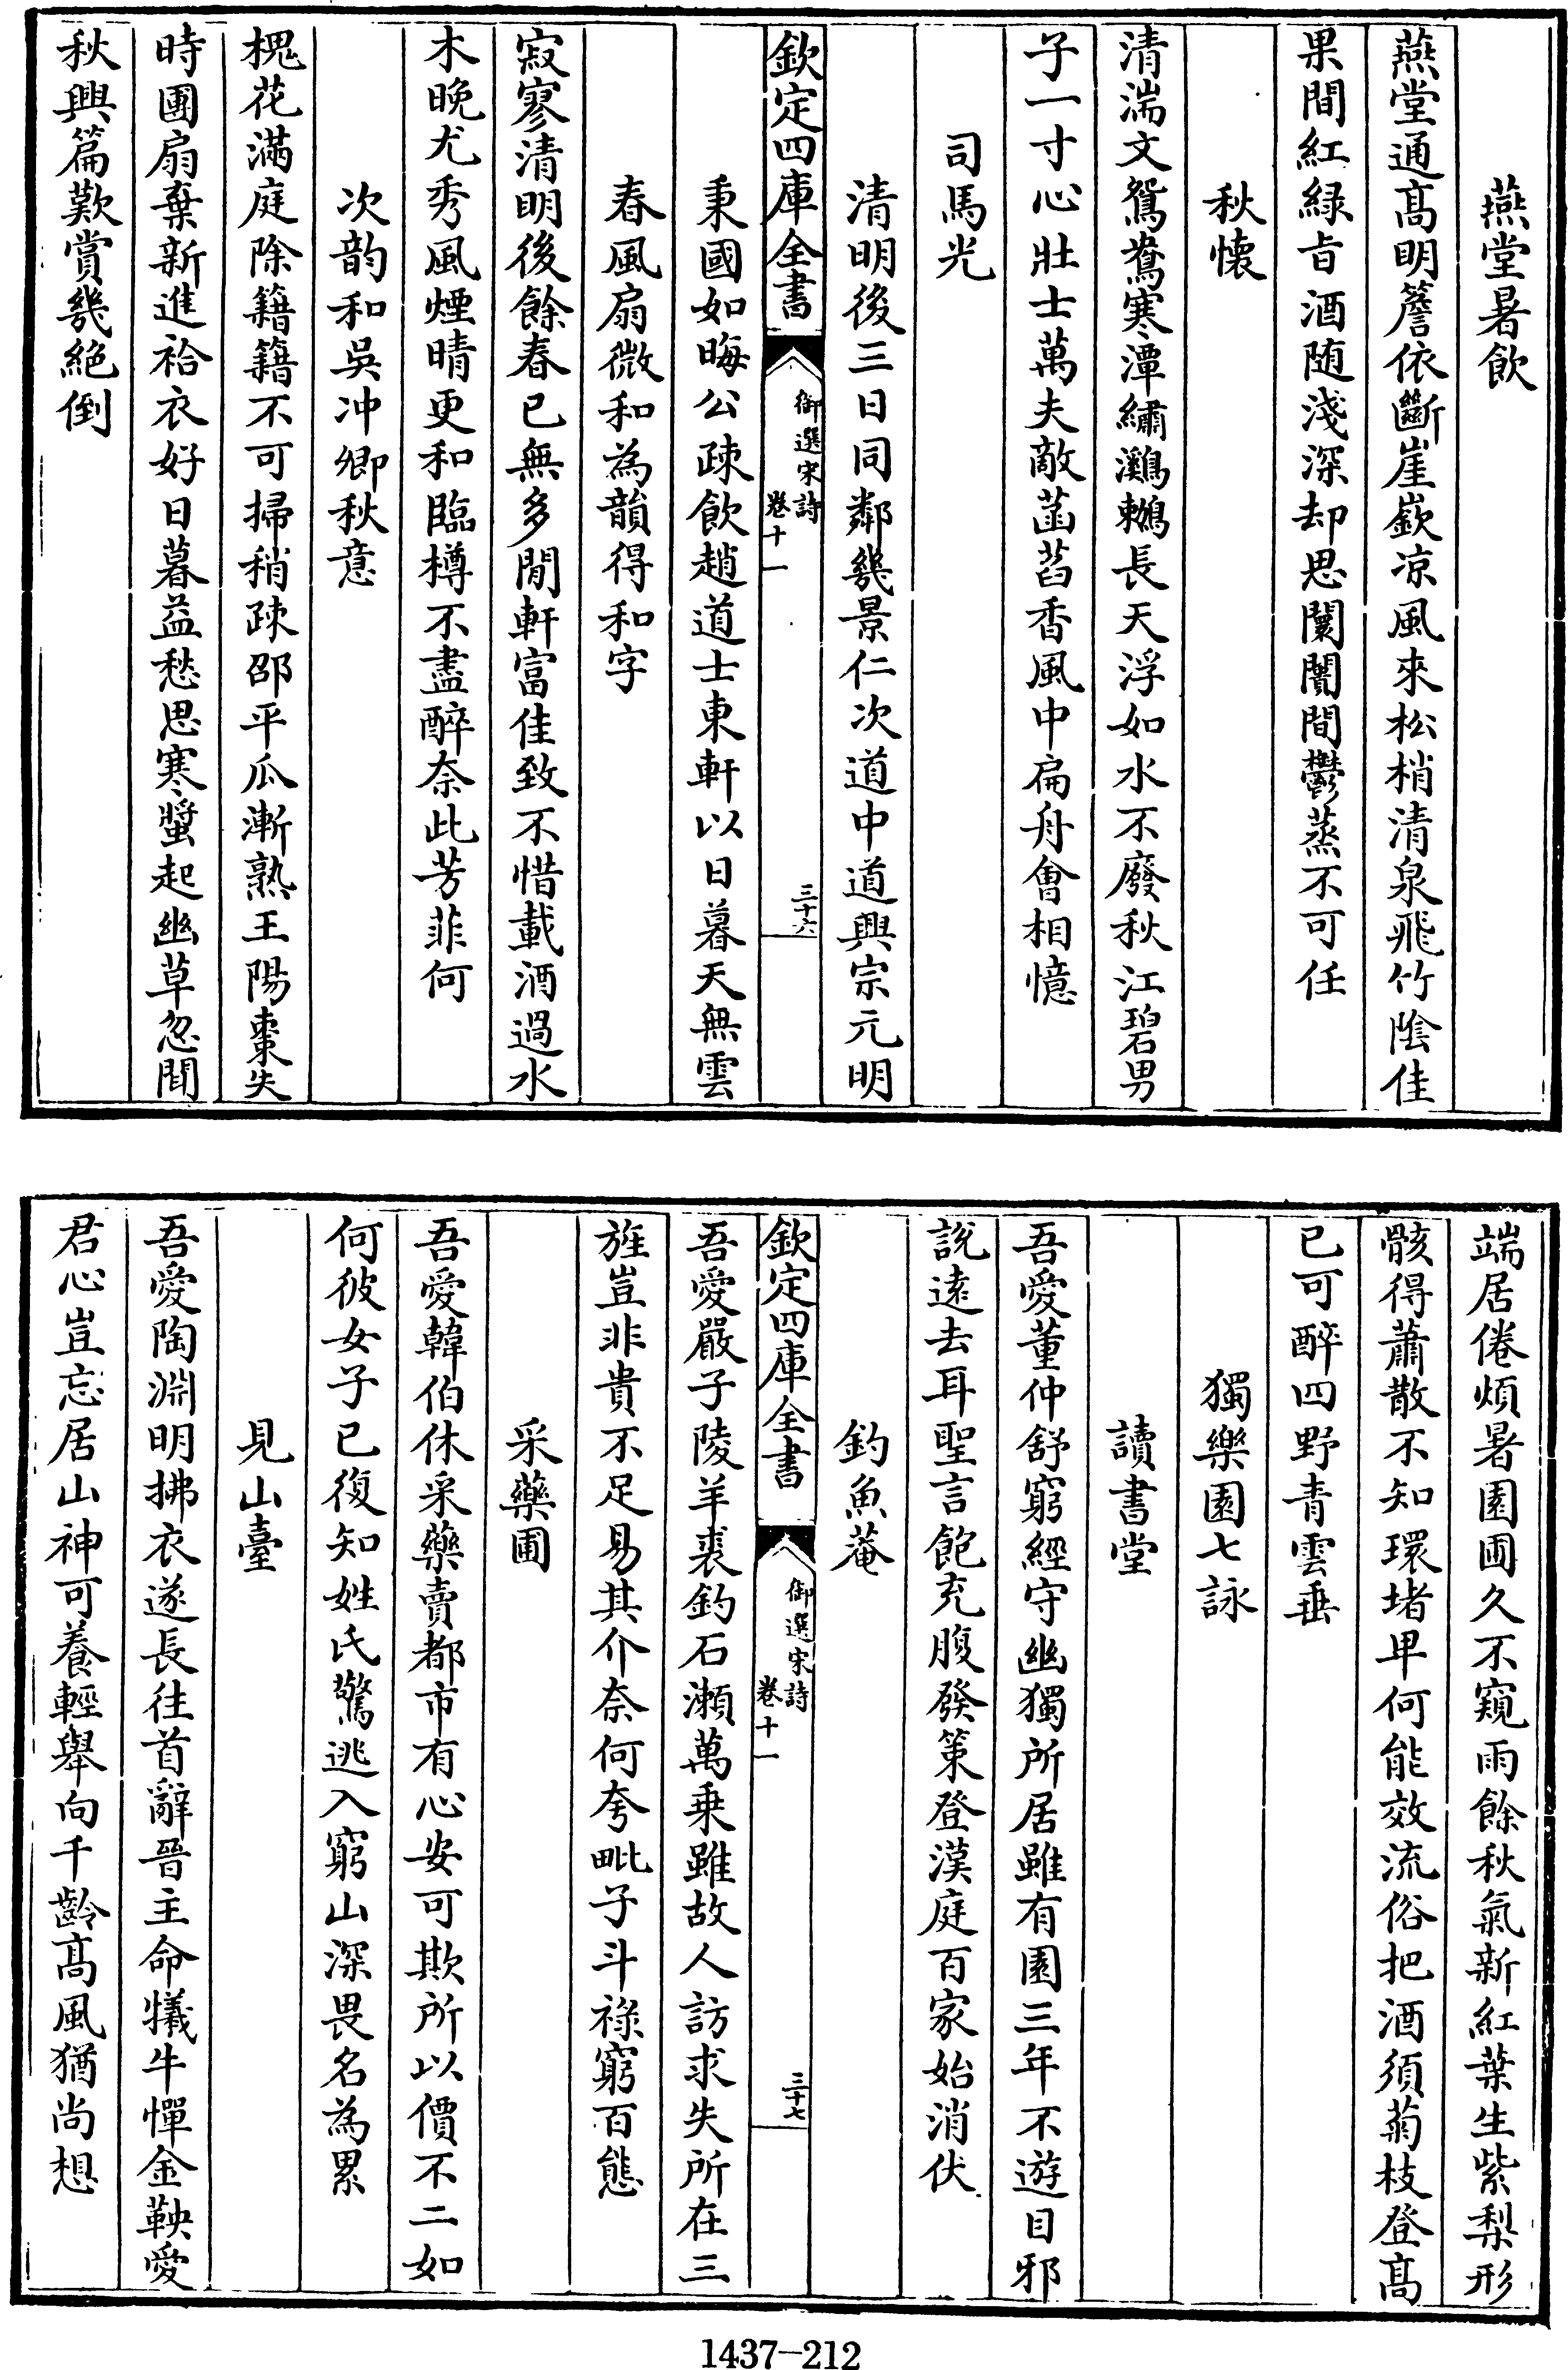 燕堂暑飲
燕堂通髙明簷依斷崖嶔凉風來松梢清泉飛竹陰佳
果間紅緑旨酒随淺深却思闤闠間鬱蒸不可任
秋懷
清湍文鴛鴦寒潭繡鸂鶒長天浮如水不廢秋江碧男
子一寸心壯士萬夫敵菡萏香風中扁舟會相憶
司馬光
清明後三日同鄰幾景仁次道中道興宗元明
欽定四庫全書
御選宋詩
卷十一
三十六
秉國如晦公疎飲趙道士東軒以日暮天無雲
春風扇微和為韻得和字
寂寥清明後餘春已無多閒軒富佳致不惜載酒過水
木晚尤秀風煙晴更和臨樽不盡醉奈此芳菲何
次韵和吳冲卿秋意
槐花滿庭除籍籍不可掃稍疎邵平瓜漸熟王陽棗失
時團扇棄新進袷衣好日暮益愁思寒螿起幽草忽聞
秋興篇歎賞幾絕倒
端居倦煩暑園圃久不窺雨餘秋氣新紅葉生紫梨形
骸得蕭散不知環堵卑何能效流俗把酒須菊枝登髙
已可醉四野青雲垂
獨樂園七詠
讀書堂
吾愛董仲舒窮經守幽獨所居雖有園三年不遊目邪
說逺去耳聖言飽充腹發策登漢庭百家始消伏
釣魚菴
欽定四庫全書
御選宋詩
卷十一
三十七
吾愛嚴子陵羊裘釣石瀬萬乗雖故人訪求失所在三
旌豈非貴不足易其介奈何夸毗子斗禄窮百態
采藥圃
吾愛韓伯休采藥賣都市有心安可欺所以價不二如
何彼女子已復知姓氏驚逃入窮山深畏名為累
見山臺
吾愛陶淵明拂衣遂長往首辭晉主命犧牛憚金鞅愛
君心豈忘居山神可養輕舉向千齡髙風猶尚想
1437-212